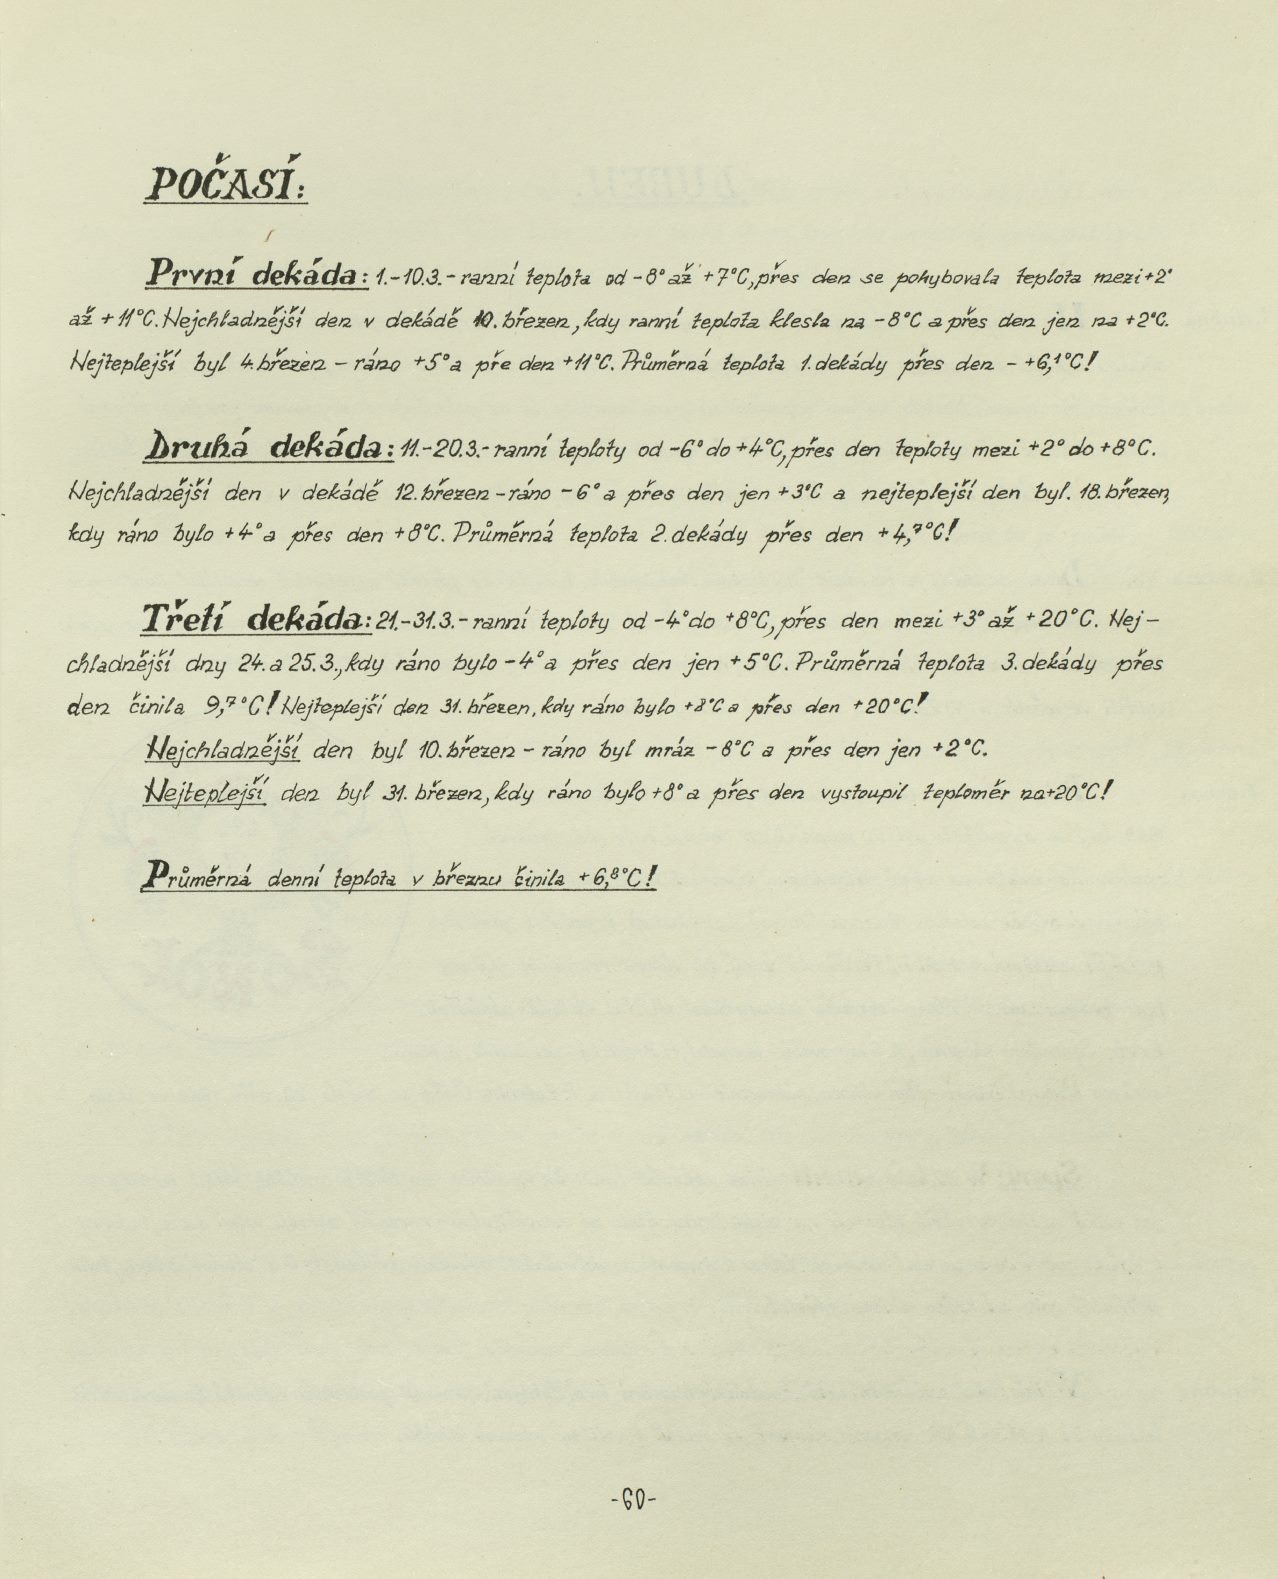 POČASÍ:
První dekáda: 1.-10.3.- ranní teplota od -8° až +7°C, přes den se pohybovala teplota mezi +2°
až +11°C. Nejchladnější den v dekádě 10. březen, kdy ranní teplota klesla na -8°C a přes den jen na +2°C.
Nejteplejší byl 4. březen - ráno +5° a pře den +11°C. Průměrná teplota 1. dekády přes den - +6,1°C!
Druhá dekáda: 11.-20.3.- ranní teploty od -6° do +4°C, přes den teploty mezi +2° do +8°C.
Nejchladnější den v dekádě 12. březen - ráno -6° a přes den jen +3°C a nejteplejší den byl. 18. březen,
kdy ráno bylo +4° a přes den +8°C. Průměrná teplota 2. dekády přes den +4,7°C!
Třetí dekáda: 21.-31.3.- ranní teploty od -4° do +8°C, přes den mezi +3° až +20°C. Nej-
chladnější dny 24. a 25.3., kdy ráno bylo -4° a přes den jen +5°C. Průměrná teplota 3. dekády přes
den činila 9,7°C! Nejteplejší den 31. březen, kdy ráno bylo +8°C a přes den +20°C!
Nejchladnější den byl 10. březen - ráno byl mráz -8°C a přes den jen +2°C.
Nejteplejší den byl 31. březen, kdy ráno bylo +8° a přes den vystoupil teploměr na +20°C!
Průměrná denní teplota v březnu činila +6,8°C!
-60-